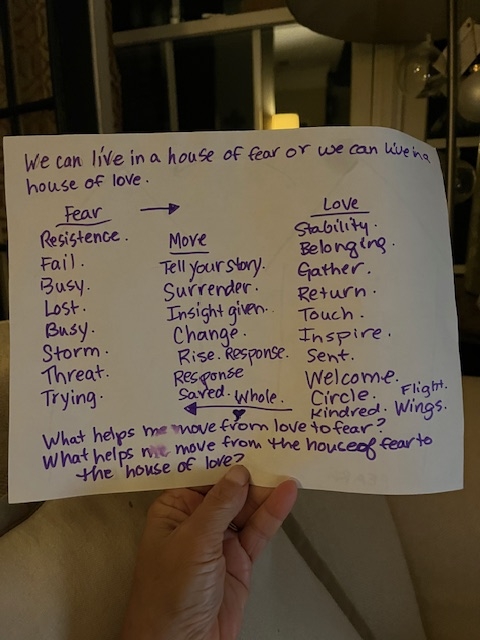 We can live in a house of fear or we can live in a
house of love.
Fear →
Resistence.
Fail.
Busy.
Lost.
Busy.
Storm.
Threat.
Trying.
Move
Tell your story.
Surrender.
Insight given.
Change.
Rise. Response.
Response
Saved. Whole.
←
Love
Stability.
Belonging.
Gather.
Return.
Touch.
Inspire.
Sent.
Welcome.
Circle. Flight.
Kindred. Wings.
What helps me move from love to fear?
What helps me move from the house of fear to
the house of love?